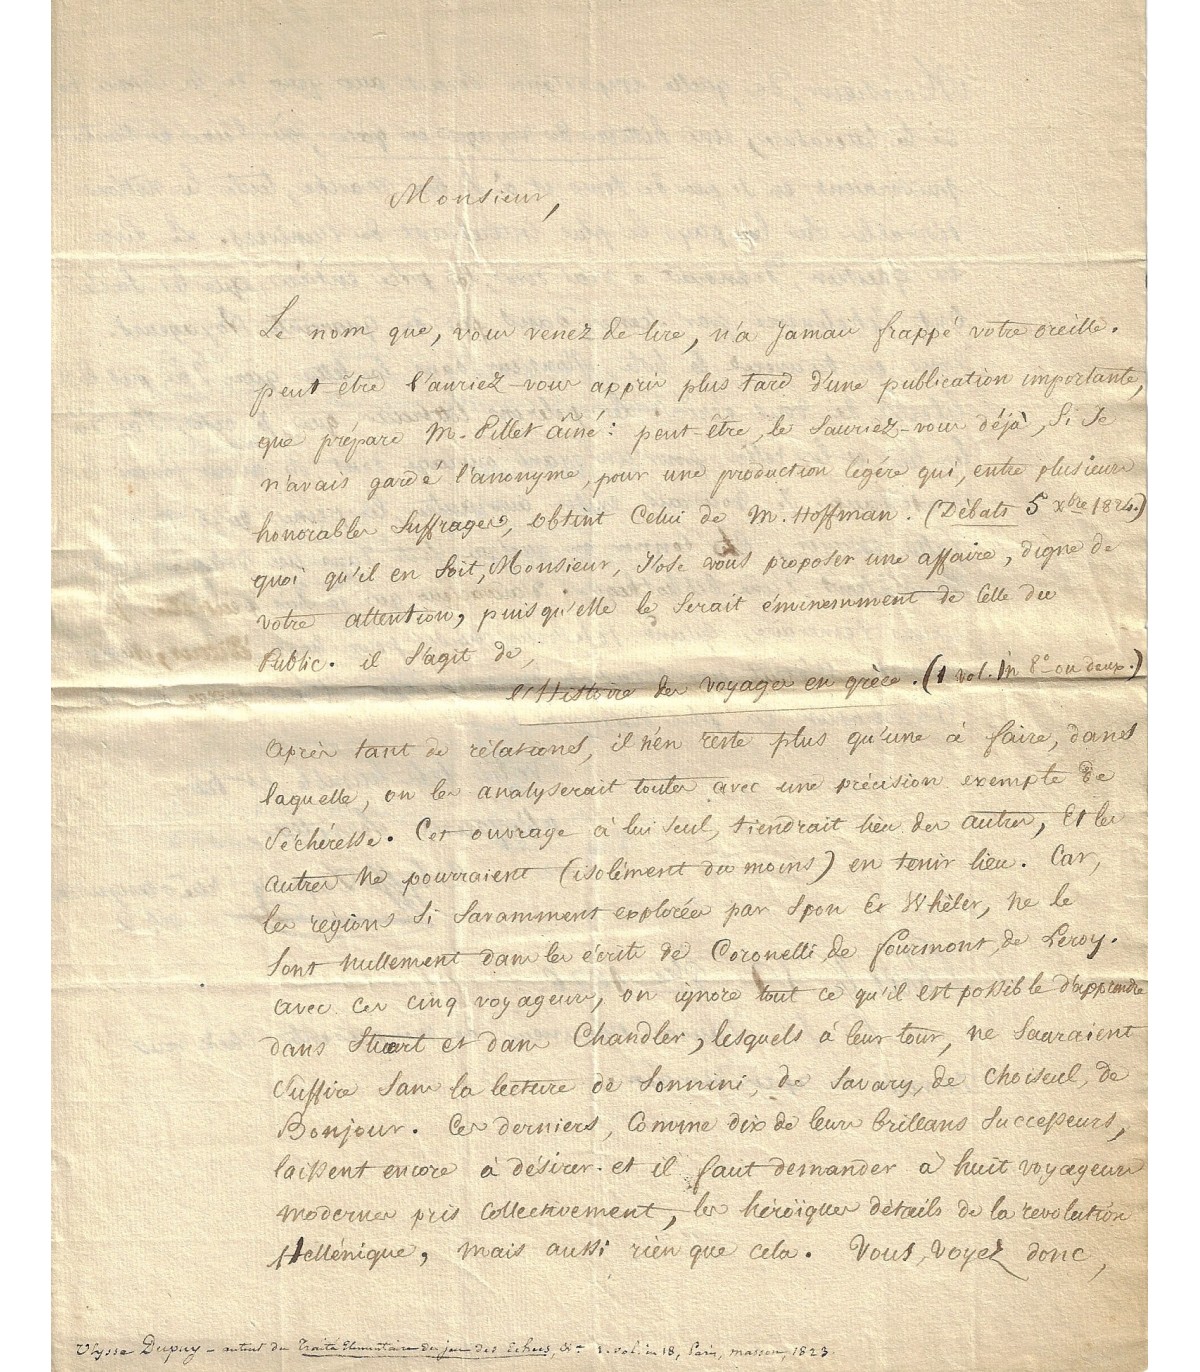 Monsieur,
Le nom que, vous venez de lire, n'a Jamais frappé votre oreille.
peut être l'auriez-vous appris plus tard d'une publication importante,
que prépare M. Pillet aîné: peut-être, le Sauriez-vous déjà, Si Je
n'avais gardé l'anonyme, pour une production légére qui, entre plusieurs
honorables Suffrages, obtint Celui de M. Hoffman. (Débats 5 xbre 1824.)
quoi qu'il en Soit, Monsieur, J'ose vous proposer une affaire, digne de
votre attention, puisqu'elle le Serait éminemment de Celle du
Public. il S'agit de,
l'Histoire des voyages en grèce. (1 vol. in 8° ou deux.)
Après tant de rélations, il n'en reste plus qu'une à faire, dans
laquelle, on les analyserait toutes avec une précision exempte de
Séchéresse. Cet ouvrage à lui Seul, tiendrait lieu des autres, Et les
autres ne pourraient (isolément du moins) en tenir lieu. Car,
les régions Si Savamment explorées par Spon Et Whéler, ne le
Sont nullement dans les écrits de Coronelli, de fourmont, de Leroy.
avec ces cinq voyageurs, on ignore tout ce qu'il est possible d'apprendre
dans Stuart et dans Chandler, lesquels à leur tour, ne Sauraient
Suffire Sans la lecture de Sonnini, de Savary, de Choiseul, de
Bonjour. Ces derniers, Comme dix de leurs brillans Successeurs,
laissent encore à désirer. et il faut demander à huit voyageurs
modernes pris Collectivement, les héroïques détails de la révolution
Hellénique, mais aussi rien que cela. Vous voyez donc,
Ulysse Dupuy - auteur du Traité élémentaire du jeu des Echecs, &+ 1. vol. in 18, Paris, masson, 1823.